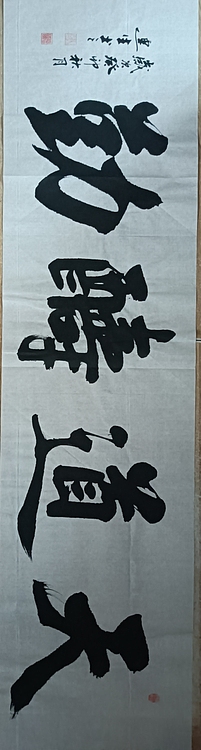 天道酬勤
歲次癸卯秋月